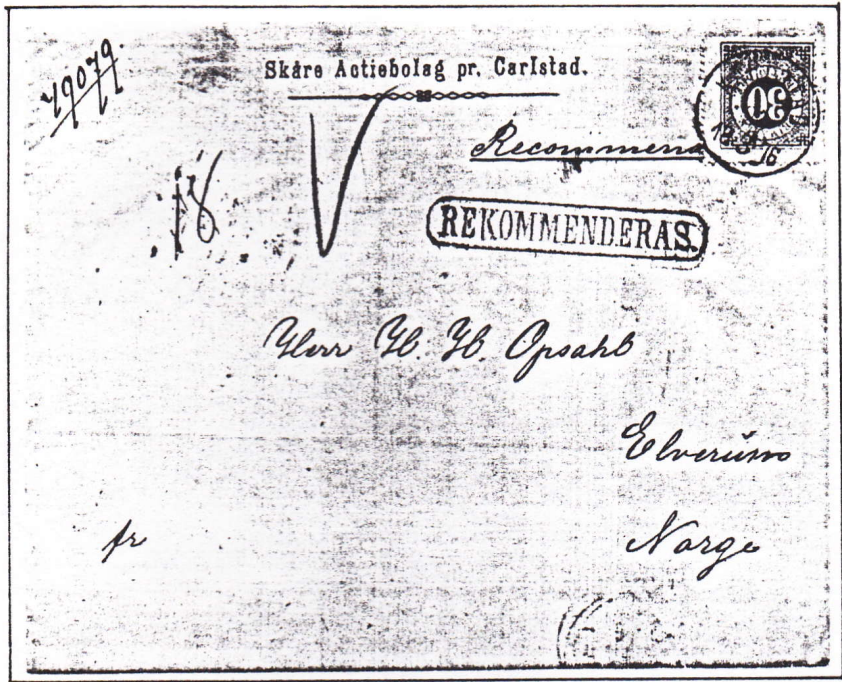 19079.
Skåre Actiebolag pr. Carlstad.
30
Recommend
18
V
REKOMMENDERAS.
Herr H. H. Opsahl
Elverum
fr
Norge